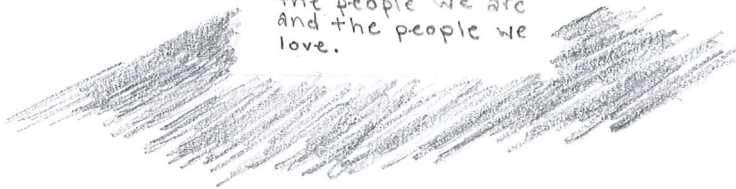 the people we are
and the people we
love.